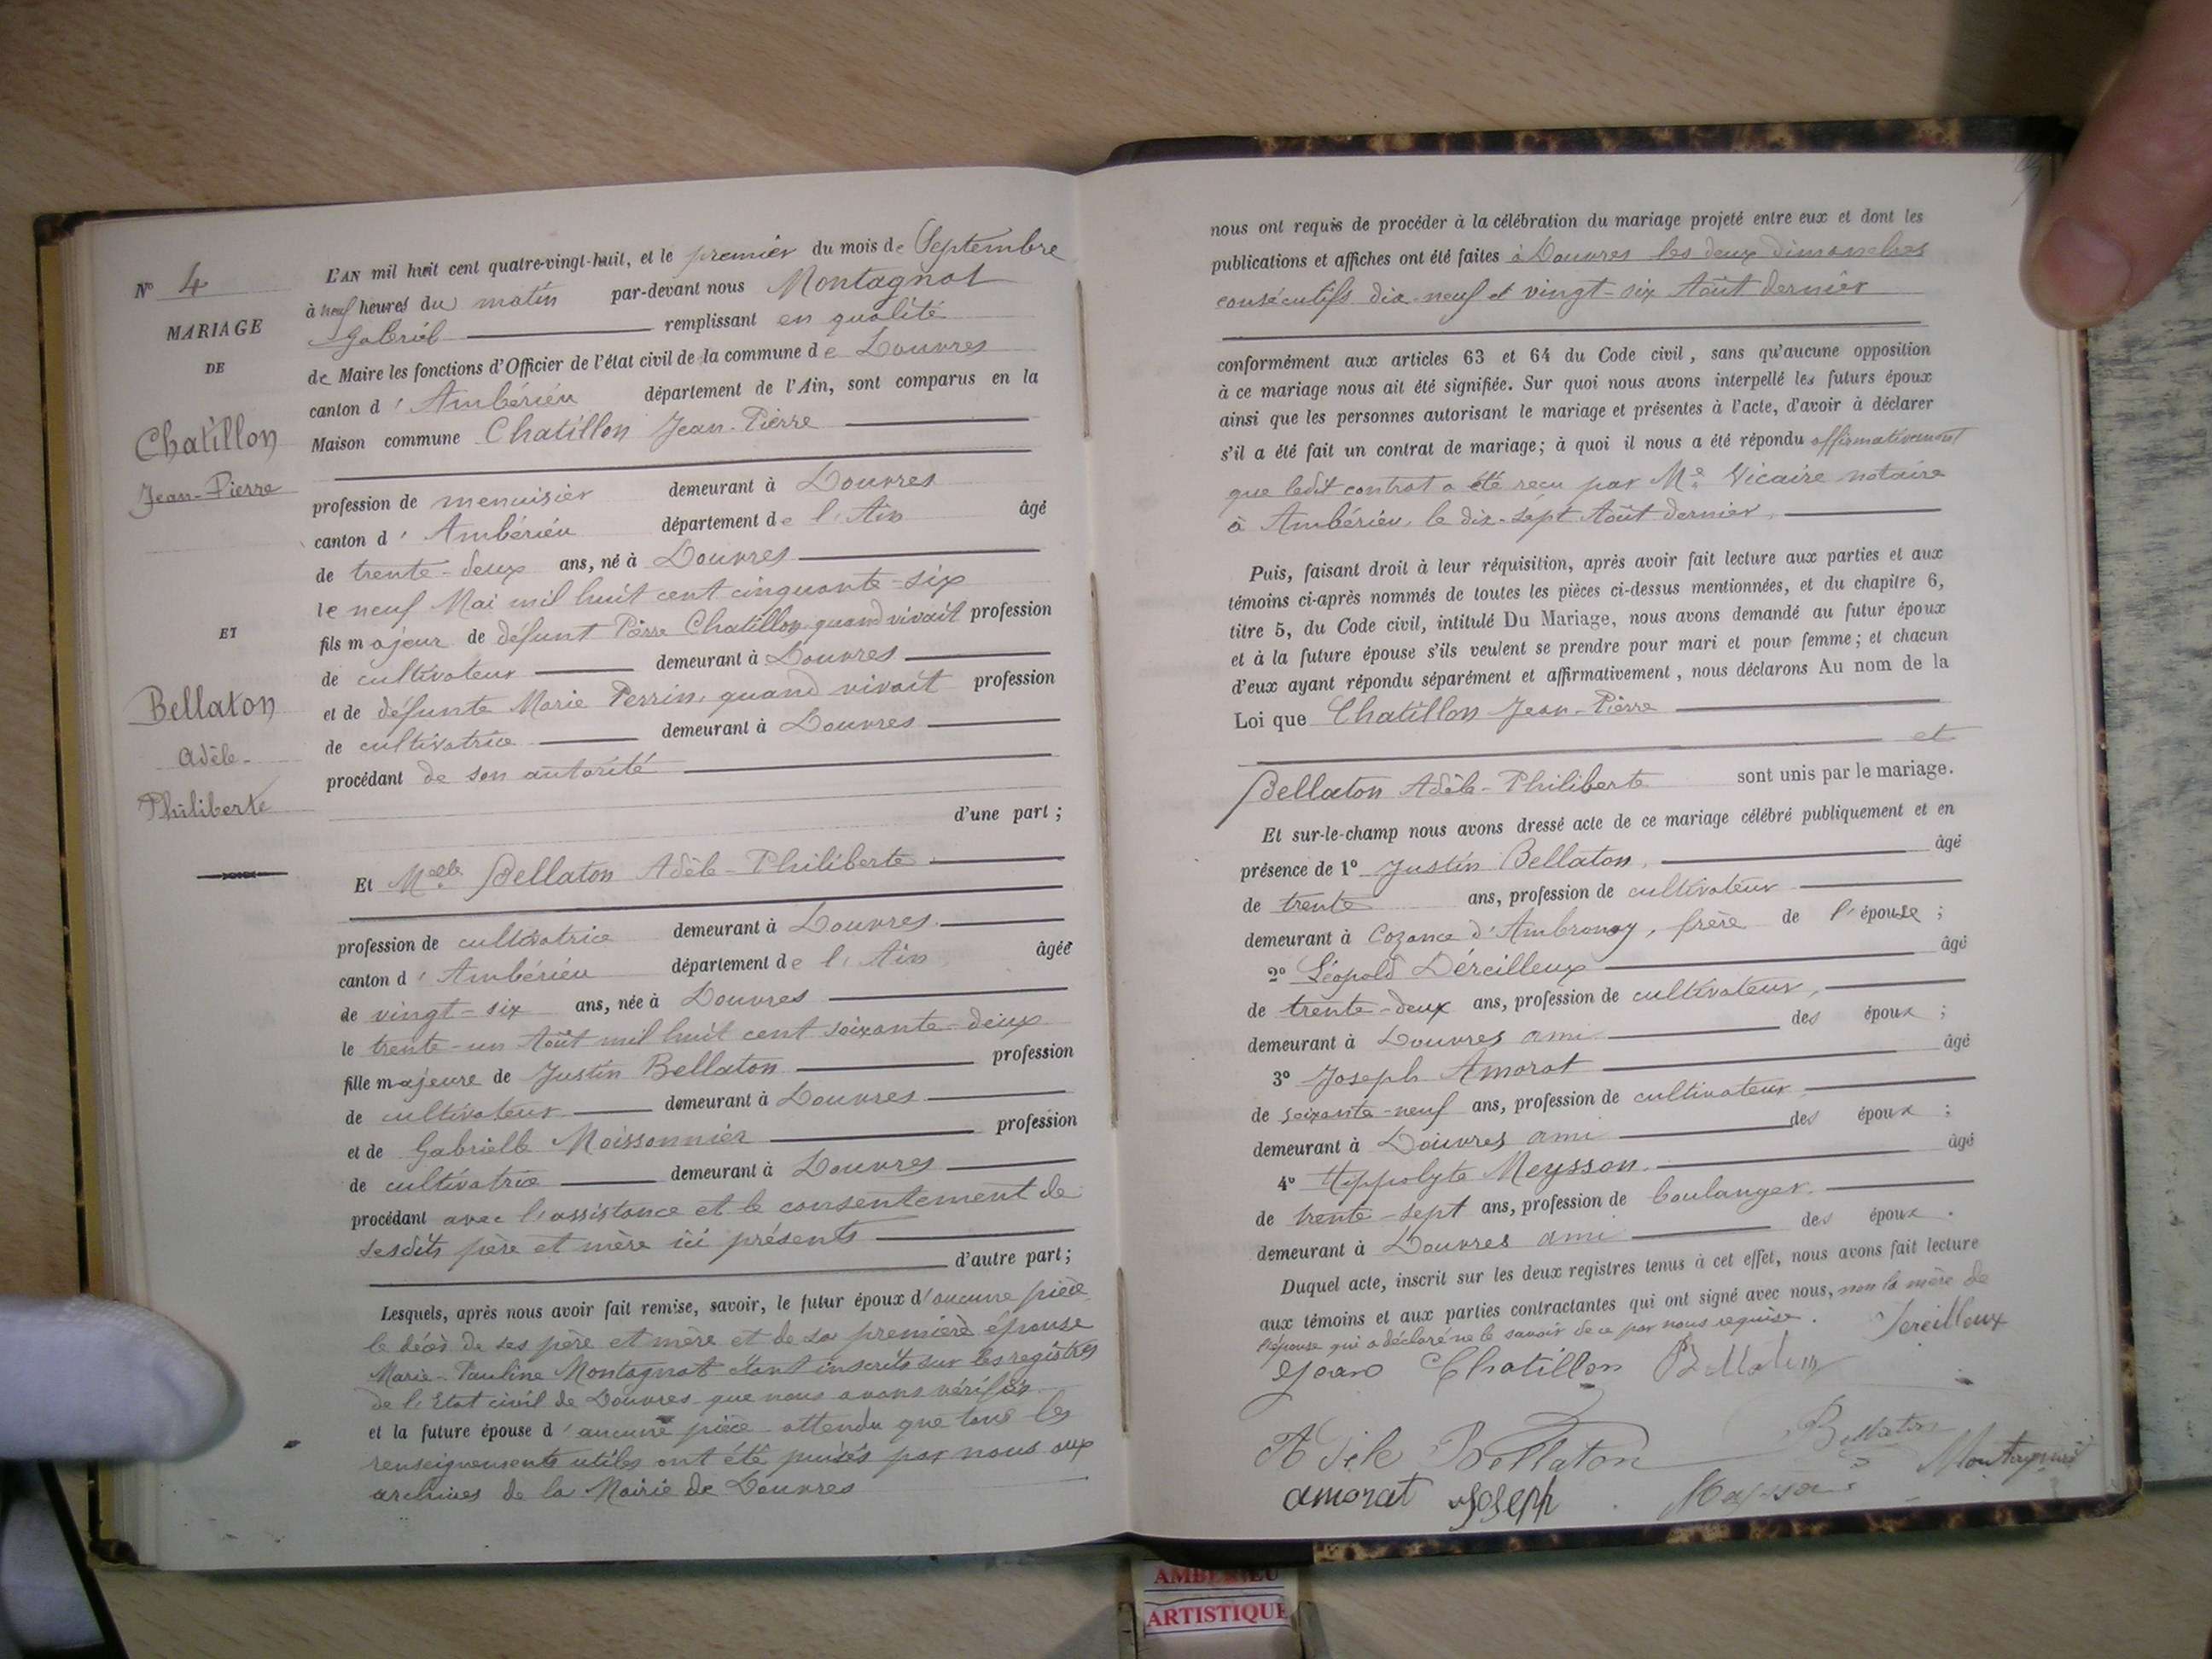 N° 4
MARIAGE
DE
Chatillon
Jean-Pierre
ET
Bellaton
Adèle-
Philiberte
L'AN mil huit cent quatre-vingt-huit, et le premier du mois de Septembre
à neuf heures du matin par-devant nous Montagnat
Gabriel remplissant en qualité
de Maire les fonctions d'Officier de l'état civil de la commune de Douvres
canton d'Ambérieu département de l'Ain, sont comparus en la
Maison commune Chatillon Jean-Pierre
profession de menuisier demeurant à Douvres
canton d'Ambérieu département de l'Ain âgé
de trente-deux ans, né à Douvres
le neuf Mai mil huit cent cinquante-six
fils majeur de défunt Pierre Chatillon quand vivait profession
de cultivateur demeurant à Douvres
et de défunte Marie Perrin, quand vivait profession
de cultivatrice demeurant à Douvres
procédant de son autorité
d'une part ;
Et Melle Bellaton Adèle-Philiberte
profession de cultivatrice demeurant à Douvres
canton d'Ambérieu département de l'Ain âgée
de vingt-six ans, née à Douvres
le trente-un Août mil huit cent soixante-deux
fille majeure de Justin Bellaton profession
de cultivateur demeurant à Douvres
et de Gabrielle Moissonnier profession
de cultivatrice demeurant à Douvres
procédant avec l'assistance et le consentement de
sesdits père et mère ici présents
d'autre part ;
Lesquels, après nous avoir fait remise, savoir, le futur époux d'aucune pièce
le décès de ses père et mère et de sa première épouse
Marie-Pauline Montagnat étant inscrits sur les registres
de l'Etat civil de Douvres que nous avons vérifiés
et la future épouse d'aucune pièce attendu que tous les
renseignements utiles ont été puisés par nous aux
archives de la Mairie de Douvres
nous ont requis de procéder à la célébration du mariage projeté entre eux et dont les
publications et affiches ont été faites à Douvres les deux dimanches
consécutifs dix-neuf et vingt-six Août dernier
conformément aux articles 63 et 64 du Code civil, sans qu'aucune opposition
à ce mariage nous ait été signifiée. Sur quoi nous avons interpellé les futurs époux
ainsi que les personnes autorisant le mariage et présentes à l'acte, d'avoir à déclarer
s'il a été fait un contrat de mariage; à quoi il nous a été répondu affirmativement
que ledit contrat a été reçu par Me Vicaire notaire
à Ambérieu, le dix-sept Août dernier.
Puis, faisant droit à leur réquisition, après avoir fait lecture aux parties et aux
témoins ci-après nommés de toutes les pièces ci-dessus mentionnées, et du chapitre 6,
titre 5, du Code civil, intitulé Du Mariage, nous avons demandé au futur époux
et à la future épouse s'ils veulent se prendre pour mari et pour femme; et chacun
d'eux ayant répondu séparément et affirmativement, nous déclarons Au nom de la
Loi que Chatillon Jean-Pierre
et
Bellaton Adèle-Philiberte sont unis par le mariage.
Et sur-le-champ nous avons dressé acte de ce mariage célébré publiquement et en
présence de 1° Justin Bellaton, âgé
de trente ans, profession de cultivateur
demeurant à Cozance d'Ambronay, frère de l'épouse ;
2° Léopold Déreilleux âgé
de trente-deux ans, profession de cultivateur,
demeurant à Douvres ami des époux ;
3° Joseph Amorat âgé
de soixante-neuf ans, profession de cultivateur,
demeurant à Douvres ami des époux ;
4° Hippolyte Meysson. âgé
de trente-sept ans, profession de boulanger.
demeurant à Douvres ami des époux.
Duquel acte, inscrit sur les deux registres tenus à cet effet, nous avons fait lecture
aux témoins et aux parties contractantes qui ont signé avec nous, non la mère de
l'épouse qui a déclaré ne le savoir de ce par nous requise. Dereilleux
Jean Chatillon Bellaton
Adele Bellaton Bellaton
Montagnat
amorat Joseph Meysson
AMBERIEU
ARTISTIQUE